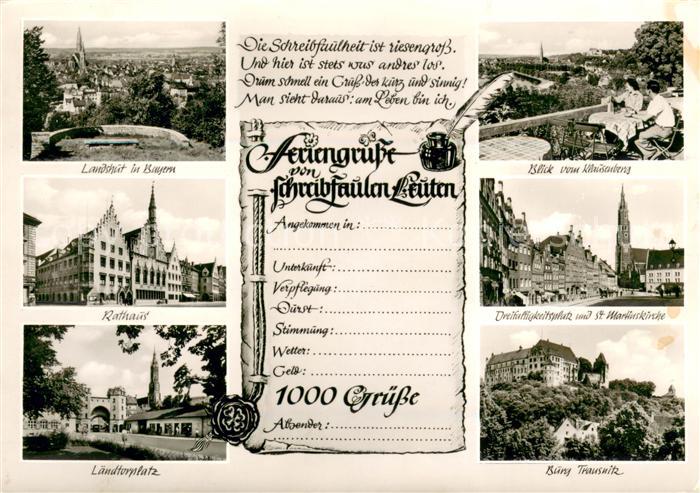 Die Schreibfaulheit ist riesengroß.
Und hier ist stets was andres los.
Drum schnell ein Gruß, der kurz und sinnig!
Man sieht daraus: am Leben bin ich.
Landshut in Bayern
Blick vom Klausenberg
Feriengrüße
von
schreibfaulen Leuten
Angekommen in:
Unterkunft:
Verpflegung:
Durst:
Stimmung:
Wetter:
Geld:
1000 Grüße
Absender:
Rathaus
Dreifaltigkeitsplatz und St. Martinskirche
Ländtorplatz
Burg Trausnitz